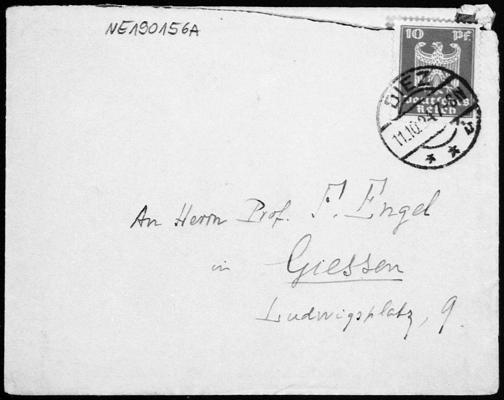 NE190156A
10 Pf.
Deutsches
Reich
DIEZ
11.10.24
An Herrn Prof. F. Engel
in
Giessen
Ludwigsplatz, 9.